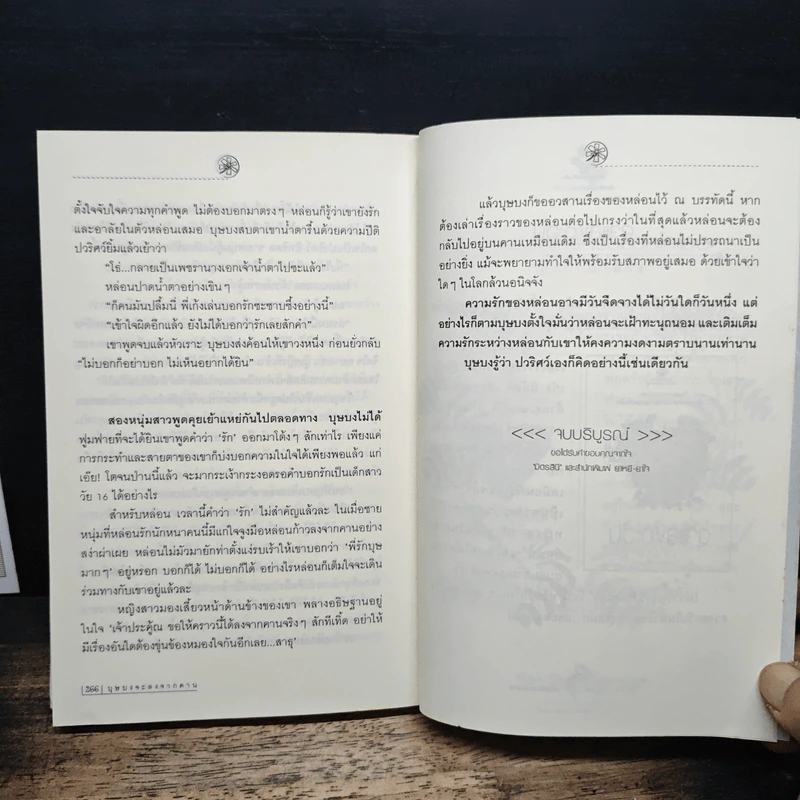 ตั้งใจจับใจความทุกคำพูด ไม่ต้องบอกมาตรงๆ หล่อนก็รู้ว่าเขายังรัก
และอาลัยในตัวหล่อนเสมอ บุษบงสบตาเขาน้ำตารื้นด้วยความปีติ
ปวริศว์ยิ้มแล้วเย้าว่า
“โธ่...กลายเป็นเพชรานางเอกเจ้าน้ำตาไปซะแล้ว”
หล่อนปาดน้ำตาอย่างเขินๆ
“ก็คนมันปลื้มนี่ พี่เก้งเล่นบอกรักซะซาบซึ้งอย่างนี้”
“เข้าใจผิดอีกแล้ว ยังไม่ได้บอกว่ารักเลยสักคำ”
เขาพูดจบแล้วหัวเราะ บุษบงส่งค้อนให้เขาวงหนึ่ง ก่อนยั่วกลับ
“ไม่บอกก็อย่าบอก ไม่เห็นอยากได้ยิน”
สองหนุ่มสาวพูดคุยเย้าแหย่กันไปตลอดทาง บุษบงไม่ได้
ฟูมฟายที่จะได้ยินเขาพูดคำว่า ‘รัก’ ออกมาโต้งๆ สักเท่าไร เพียงแค่
การกระทำและสายตาของเขาก็บ่งบอกความในใจได้เพียงพอแล้ว แก่
เอ๊ย! โตจนป่านนี้แล้ว จะมากระเง้ากระงอดรอคำบอกรักเป็นเด็กสาว
วัย 16 ได้อย่างไร
สำหรับหล่อน เวลานี้คำว่า ‘รัก’ ไม่สำคัญแล้วละ ในเมื่อชาย
หนุ่มที่หล่อนรักนักหนาคนนี้มีแก่ใจจูงมือหล่อนก้าวลงจากคานอย่าง
สง่าผ่าเผย หล่อนไม่มัวมายักท่าตั้งแง่รบเร้าให้เขาบอกว่า ‘พี่รักบุษ
มากๆ’ อยู่หรอก บอกก็ได้ ไม่บอกก็ได้ อย่างไรหล่อนก็เต็มใจจะเดิน
ร่วมทางกับเขาอยู่แล้วละ
หญิงสาวมองเสี้ยวหน้าด้านข้างของเขา พลางอธิษฐานอยู่
ในใจ ‘เจ้าประคู้ณ ขอให้คราวนี้ได้ลงจากคานจริงๆ สักทีเถิด อย่าให้
มีเรื่องอันใดต้องขุ่นข้องหมองใจกันอีกเลย...สาธุ’
|266| บุษบงจะลงจากคาน
แล้วบุษบงก็ขออวสานเรื่องของหล่อนไว้ ณ บรรทัดนี้ หาก
ต้องเล่าเรื่องราวของหล่อนต่อไปเกรงว่าในที่สุดแล้วหล่อนจะต้อง
กลับไปอยู่บนคานเหมือนเดิม ซึ่งเป็นเรื่องที่หล่อนไม่ปรารถนาเป็น
อย่างยิ่ง แม้จะพยายามทำใจให้พร้อมรับสภาพอยู่เสมอ ด้วยเข้าใจว่า
ใดๆ ในโลกล้วนอนิจจัง
ความรักของหล่อนอาจมีวันจืดจางได้ไม่วันใดก็วันหนึ่ง แต่
อย่างไรก็ตามบุษบงตั้งใจมั่นว่าหล่อนจะเฝ้าทะนุถนอม และเติมเต็ม
ความรักระหว่างหล่อนกับเขาให้คงความงดงามตราบนานเท่านาน
บุษบงรู้ว่า ปวริศว์เองก็คิดอย่างนี้เช่นเดียวกัน
<<< จบบริบูรณ์ >>>
ขอได้รับคำขอบคุณจากใจ
‘มิตรสินี’ และสำนักพิมพ์ ยาหยี-ยาใจ